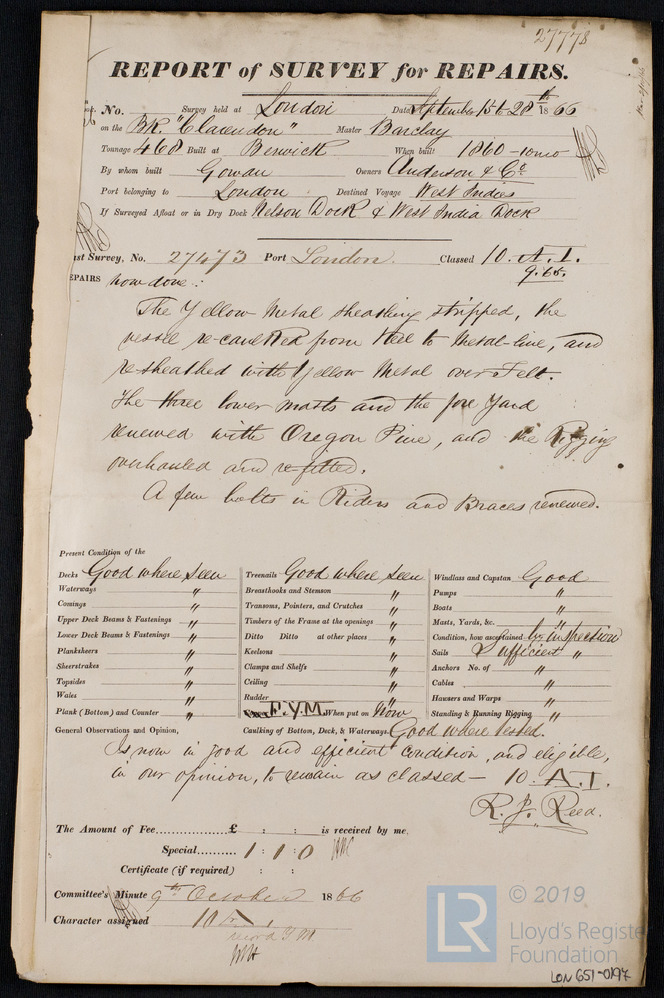 27778
REPORT of SURVEY for REPAIRS.
No. Survey held at London Date September 15th 28th 1866
on the BK. "Clarendon" Master Barclay
Tonnage 468 Built at Berwick When built 1860-10mo
By whom built Gowan Owners Anderson & Co.
Port belonging to London Destined Voyage West Indies
If Surveyed Afloat or in Dry Dock Nelson Dock & West India Dock
st Survey, No. 27473 Port London. Classed 10. A.1.
9.65.
EPAIRS now done:
The Yellow Metal sheathing stripped, the
vessel re-caulked from Keel to Metal-line, and
re-sheathed with Yellow Metal over Felt.
The three lower masts and the fore Yard
renewed with Oregon Pine, and the Rigging
overhauled and re-fitted.
A few bolts in Riders and Braces renewed.
Present Condition of the
Decks Good where seen
Waterways "
Comings "
Upper Deck Beams & Fastenings "
Lower Deck Beams & Fastenings "
Planksheers "
Sheerstrakes "
Topsides "
Wales "
Plank (Bottom) and Counter "
Treenails Good where seen
Breasthooks and Stemson "
Transoms, Pointers, and Crutches "
Timbers of the Frame at the openings "
Ditto Ditto at other places "
Keelsons "
Clamps and Shelfs "
Ceiling "
Rudder "
F.Y.M. When put on Now
Windlass and Capstan Good
Pumps "
Boats "
Masts, Yards, &c. "
Condition, how ascertained by inspection
Sails Sufficient "
Anchors No. of "
Cables "
Hawsers and Warps "
Standing & Running Rigging "
General Observations and Opinion, Caulking of Bottom, Deck, & Waterways. Good where tested.
Is now in good and efficient condition, and eligible,
in our opinion, to remain as classed - 10. A.1.
R. J. Reed.
The Amount of Fee............... £ : : is received by me,
Special.......... 1 : 1 : 0
Certificate (if required) : :
Committee's Minute 9th October 1866
Character assigned 10 A 1.
record Y M
LR
© 2019
Lloyd's Register
Foundation
LON 651-0197